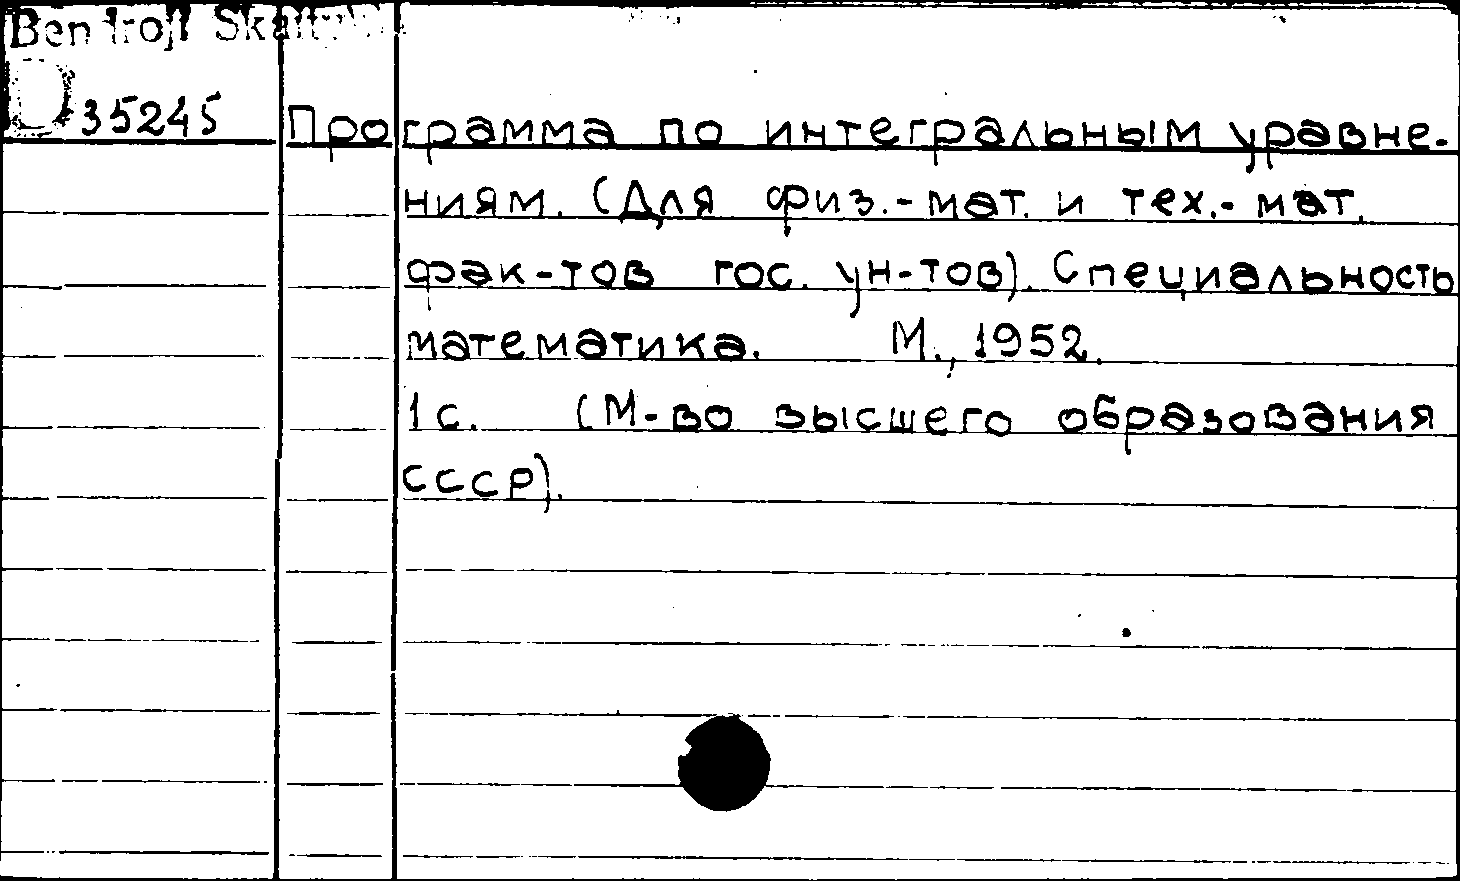 Bendroji Skaitykla
D 35245
Программа по интегральным уравне-
ниям. (Для физ.-мат. и тех.-мат.
фак-тов гос. ун-тов). Специальность
математика. М., 1952.
1 с. (М-во высшего образования
СССР).